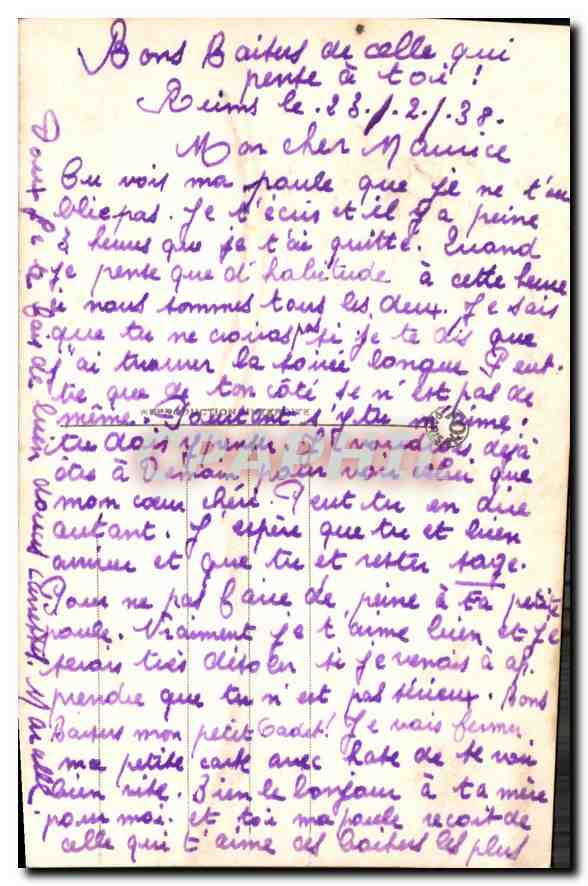 Bons Baisers de celle qui
pense à toi !
Reims le 23/2/38.
Mon cher Maurice
Tu vois ma poule que je ne t'ou
blie pas. Je t'écris et il y a peine
2 heures que je t'ai quitté. Quand
je pense que d'habitude à cette heure
si nous sommes tous les deux. Je sais
que tu ne croiras pas si je te dis que
j'ai trouver la soirée longue. Peut-
tre que de ton côté se n'est pas de
même. Pourtant si tu m'aime
tu dois y penser. Je voudrais déjà
êtes à Demain pour voir celui que
mon cœur chéri. Peut tu en dire
autant. J'espère que tu et bien
arriver et que tu et rester sage.
Pour ne pas faire de peine à ta petite
poule. Vraiment je t'aime bien et je
serais très désoler si je venais à ap
prendre que tu n'est pas sérieux. Bons
Baisers mon petit Cadet! Je vais fermer
ma petite carte avec hate de te voir
bien vite. Bien le bonjour à ta mère
pour moi. et toi ma poule reçoit de
celle qui t'aime ces baisers les plus
REPRODUCTION INTERDITE